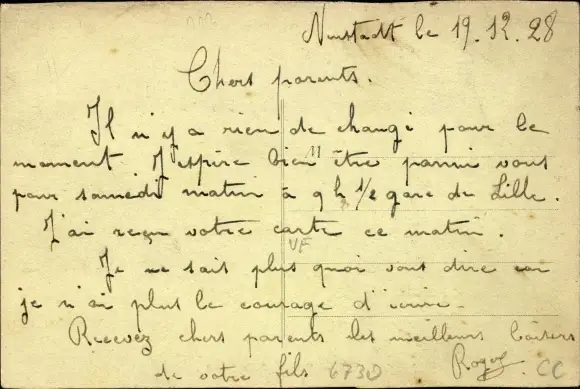 Neustadt le 19.12.28
Chers parents.
Il n'y a rien de changé pour le
moment J'espère bien être parmi vous
pour samedi matin à 9 h 1/2 gare de Lille.
J'ai reçu votre carte ce matin.
VF
Je ne sait plus quoi vous dire car
je n'ai plus le courage d'écrire.
Recevez chers parents les meilleurs baisers
de votre fils Roger
6730 CC